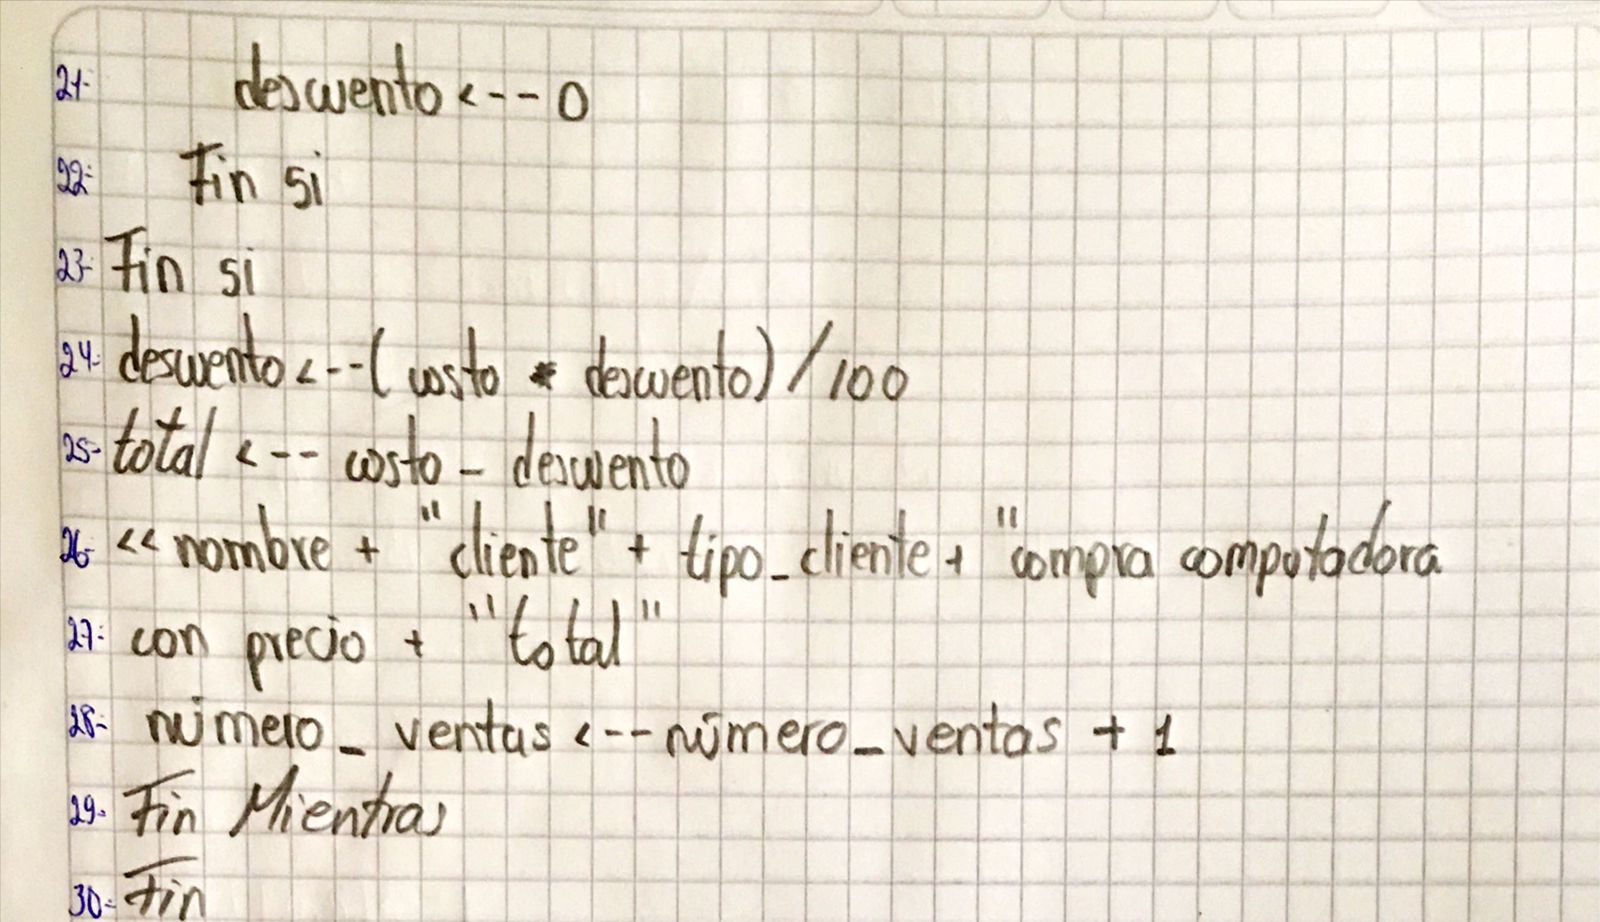 21- descuento <--- 0
22- Fin si
23- Fin si
24- descuento <--(costo * descuento)/100
25- total <-- costo - descuento
26- << nombre + "cliente" + tipo_cliente + "compra computadora
27- con precio + "total"
28- número_ventas <--número_ventas + 1
29- Fin Mientras
30- Fin